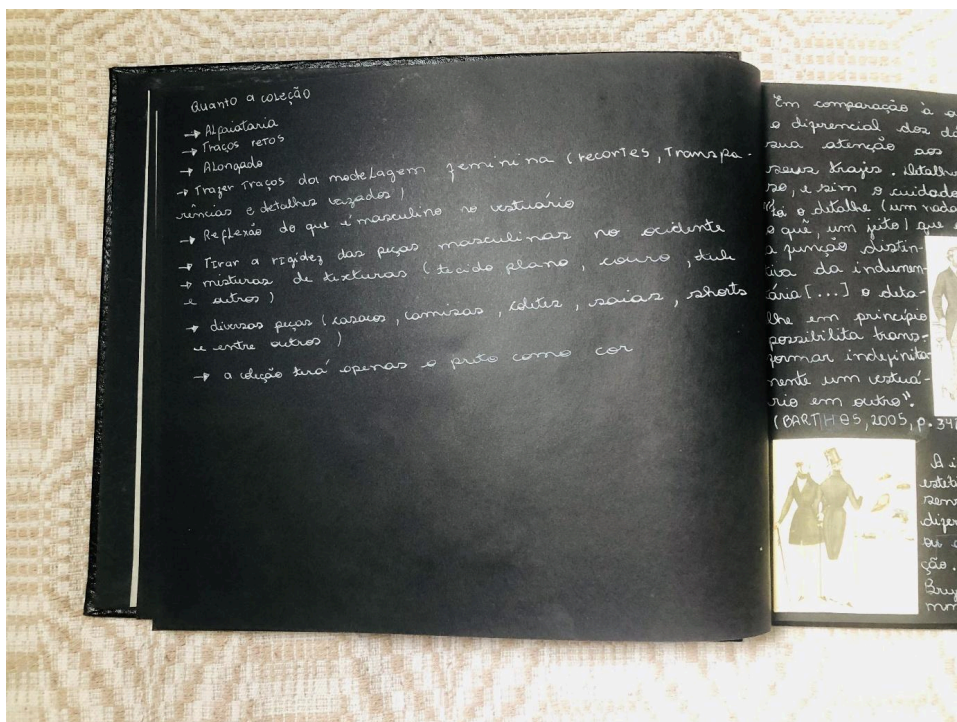 Quanto a coleção
→ Alfaiataria
→ Traços retos
→ Alongado
→ Trazer traços da modelagem feminina (recortes, transpa-
rências e detalhes vazados)
→ Reflexão do que é masculino no vestuário
→ Tirar a rigidez das peças masculinas no ocidente
→ misturas de texturas (tecido plano, couro, tule
e outros)
→ diversas peças (casacos, camisas, coletes, saias, shorts
e entre outros)
→ a coleção terá apenas o preto como cor
Em comparação à
o diferencial dos
sua atenção aos
seus trajes.
so, e sim o cuidado
"Foi o detalhe (um nada
o quê, um jeito) que
a função distin-
tiva da indumen-
tária [...] o deta-
lhe em princípio
possibilita trans-
formar indefinita-
mente um vestuá-
rio em outro".
(BARTHES, 2005, p.
A
ou
ção.